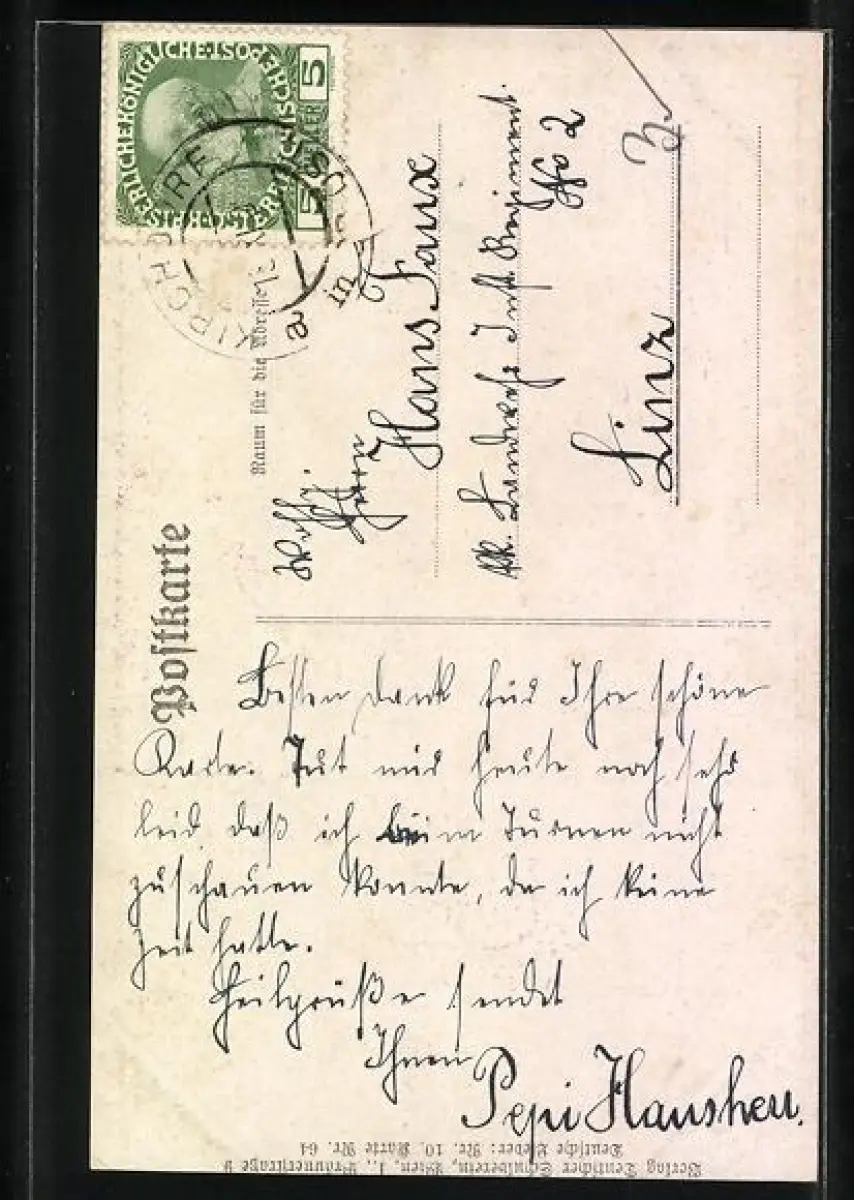 KAISERLICHE KÖNIGLICHE ÖSTERREICHISCHE POST
5 HELLER 5
KIRCHDORF
a
Postkarte
Raum für die Adresse
Herrn
Hans Faux
in
kk. Landwehr Inft. Regiment
No 2
Linz
Besten Dank für Ihre schöne
Karte. Tut mir heute noch sehr
leid, daß ich beim Turnen nicht
zuschauen konnte, da ich keine
Zeit hatte.
Heilgrüße sendet
Ihnen
Pepi Hausherr.
Verlag Deutscher Schulverein, Wien, I., Bräunerstraße 9
Deutsche Lieder: Nr. 10. Karte Nr. 64